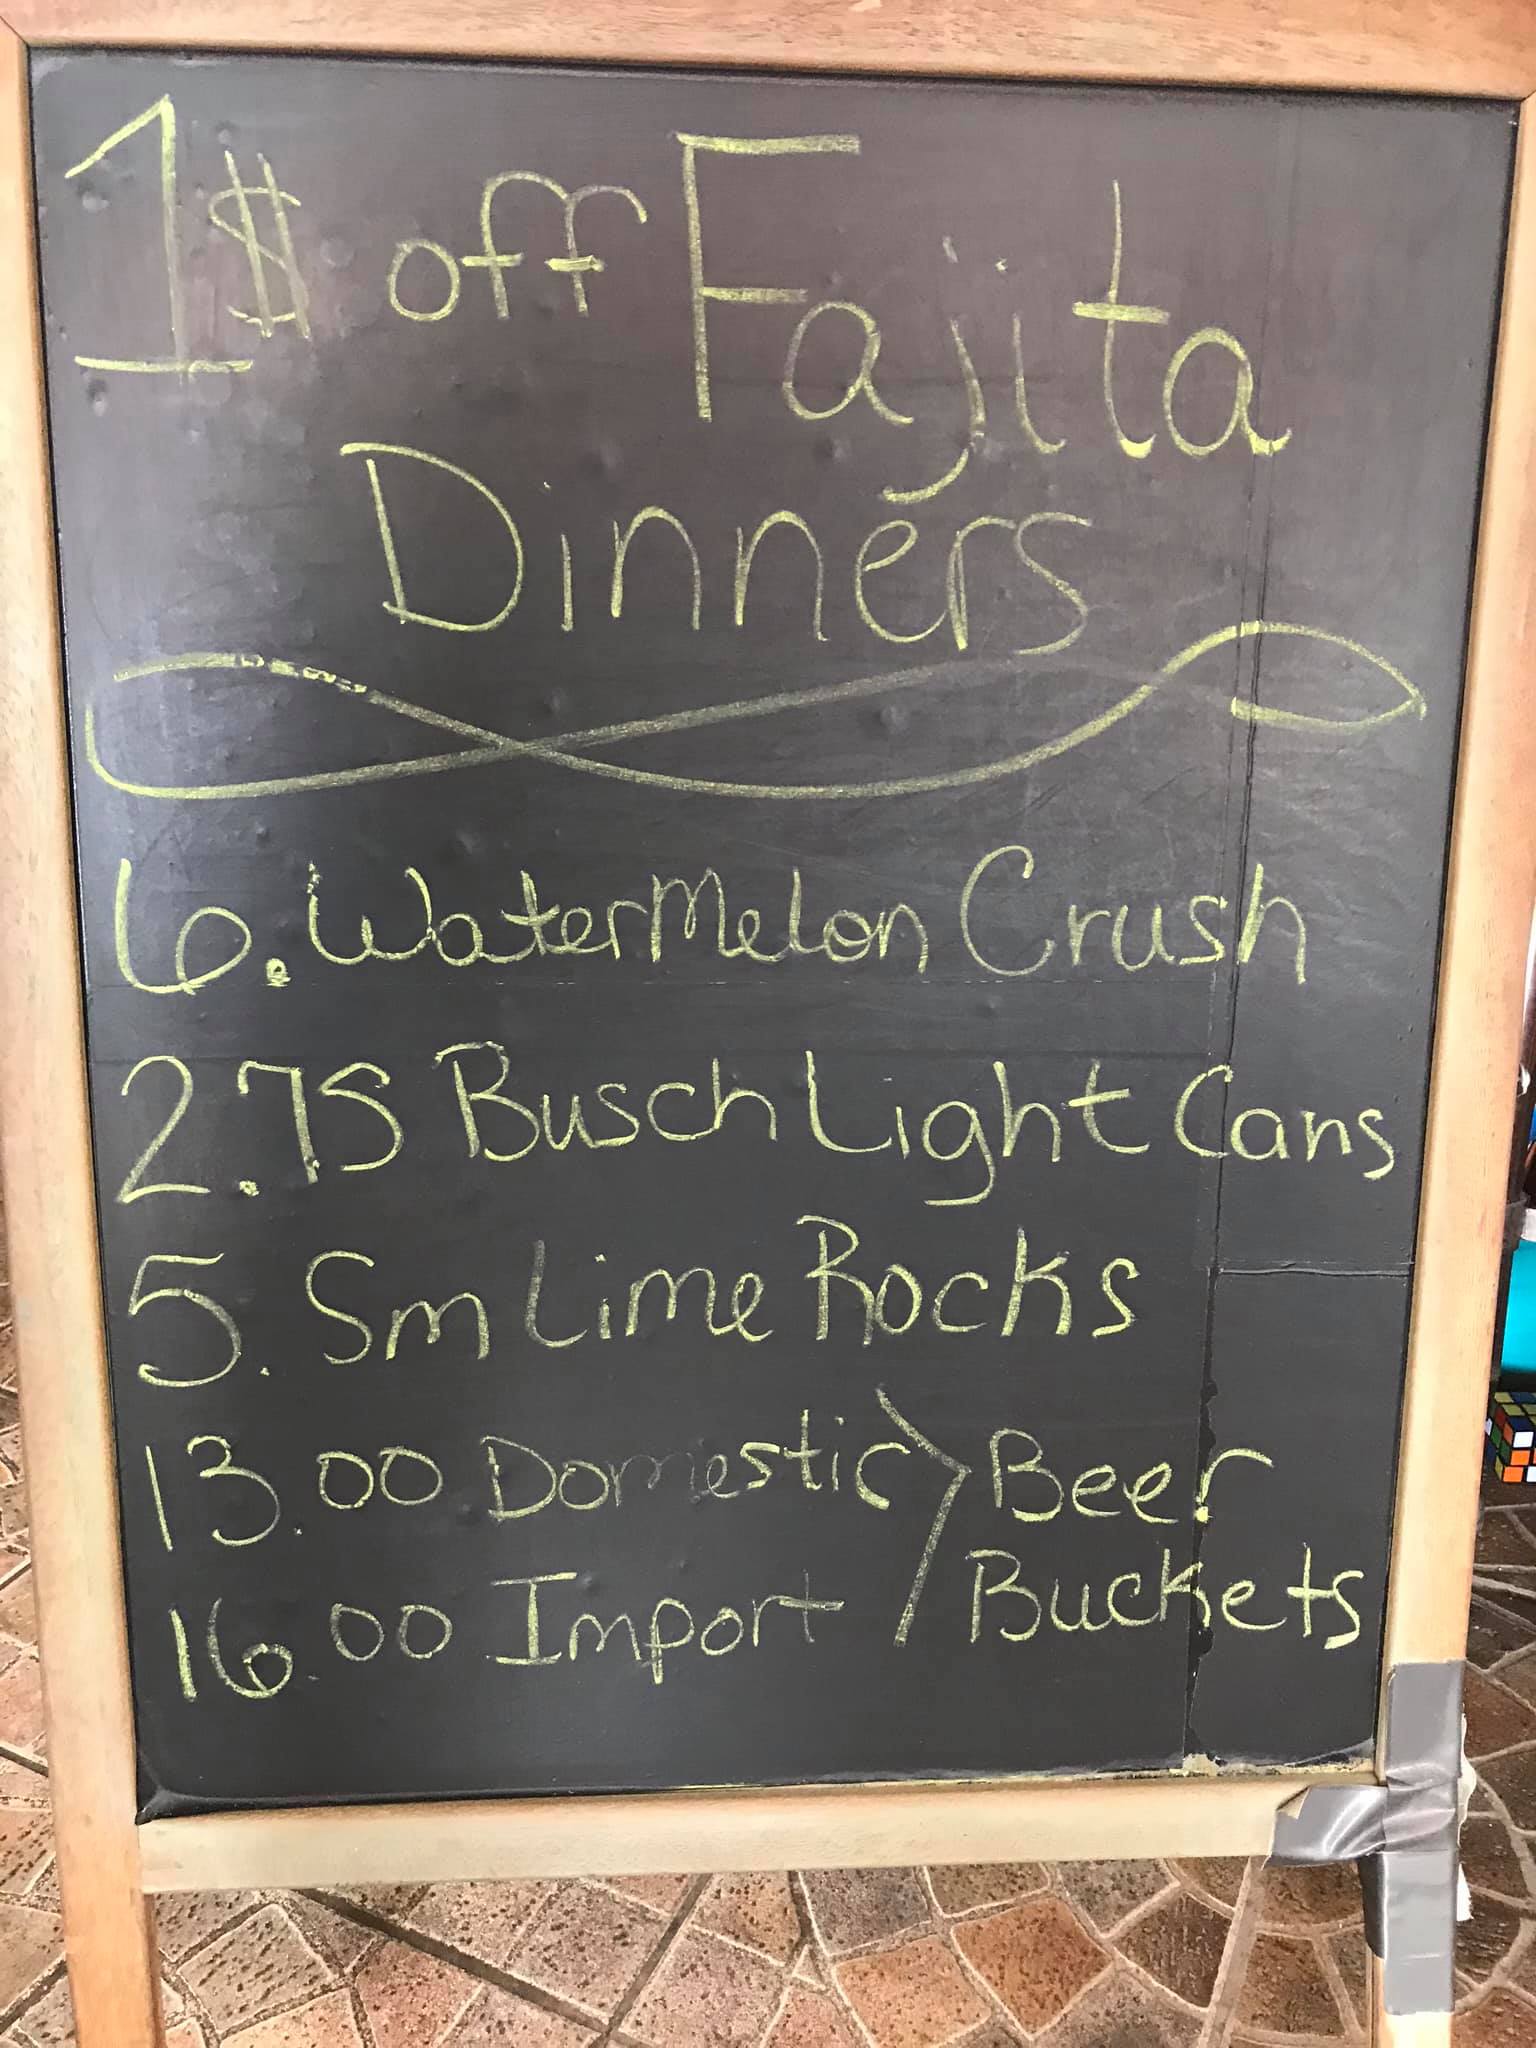 1$ off Fajita
Dinners
6. Watermelon Crush
2.75 Busch Light Cans
5. Sm Lime Rocks
13.00 Domestic > Beer
16.00 Import Buckets